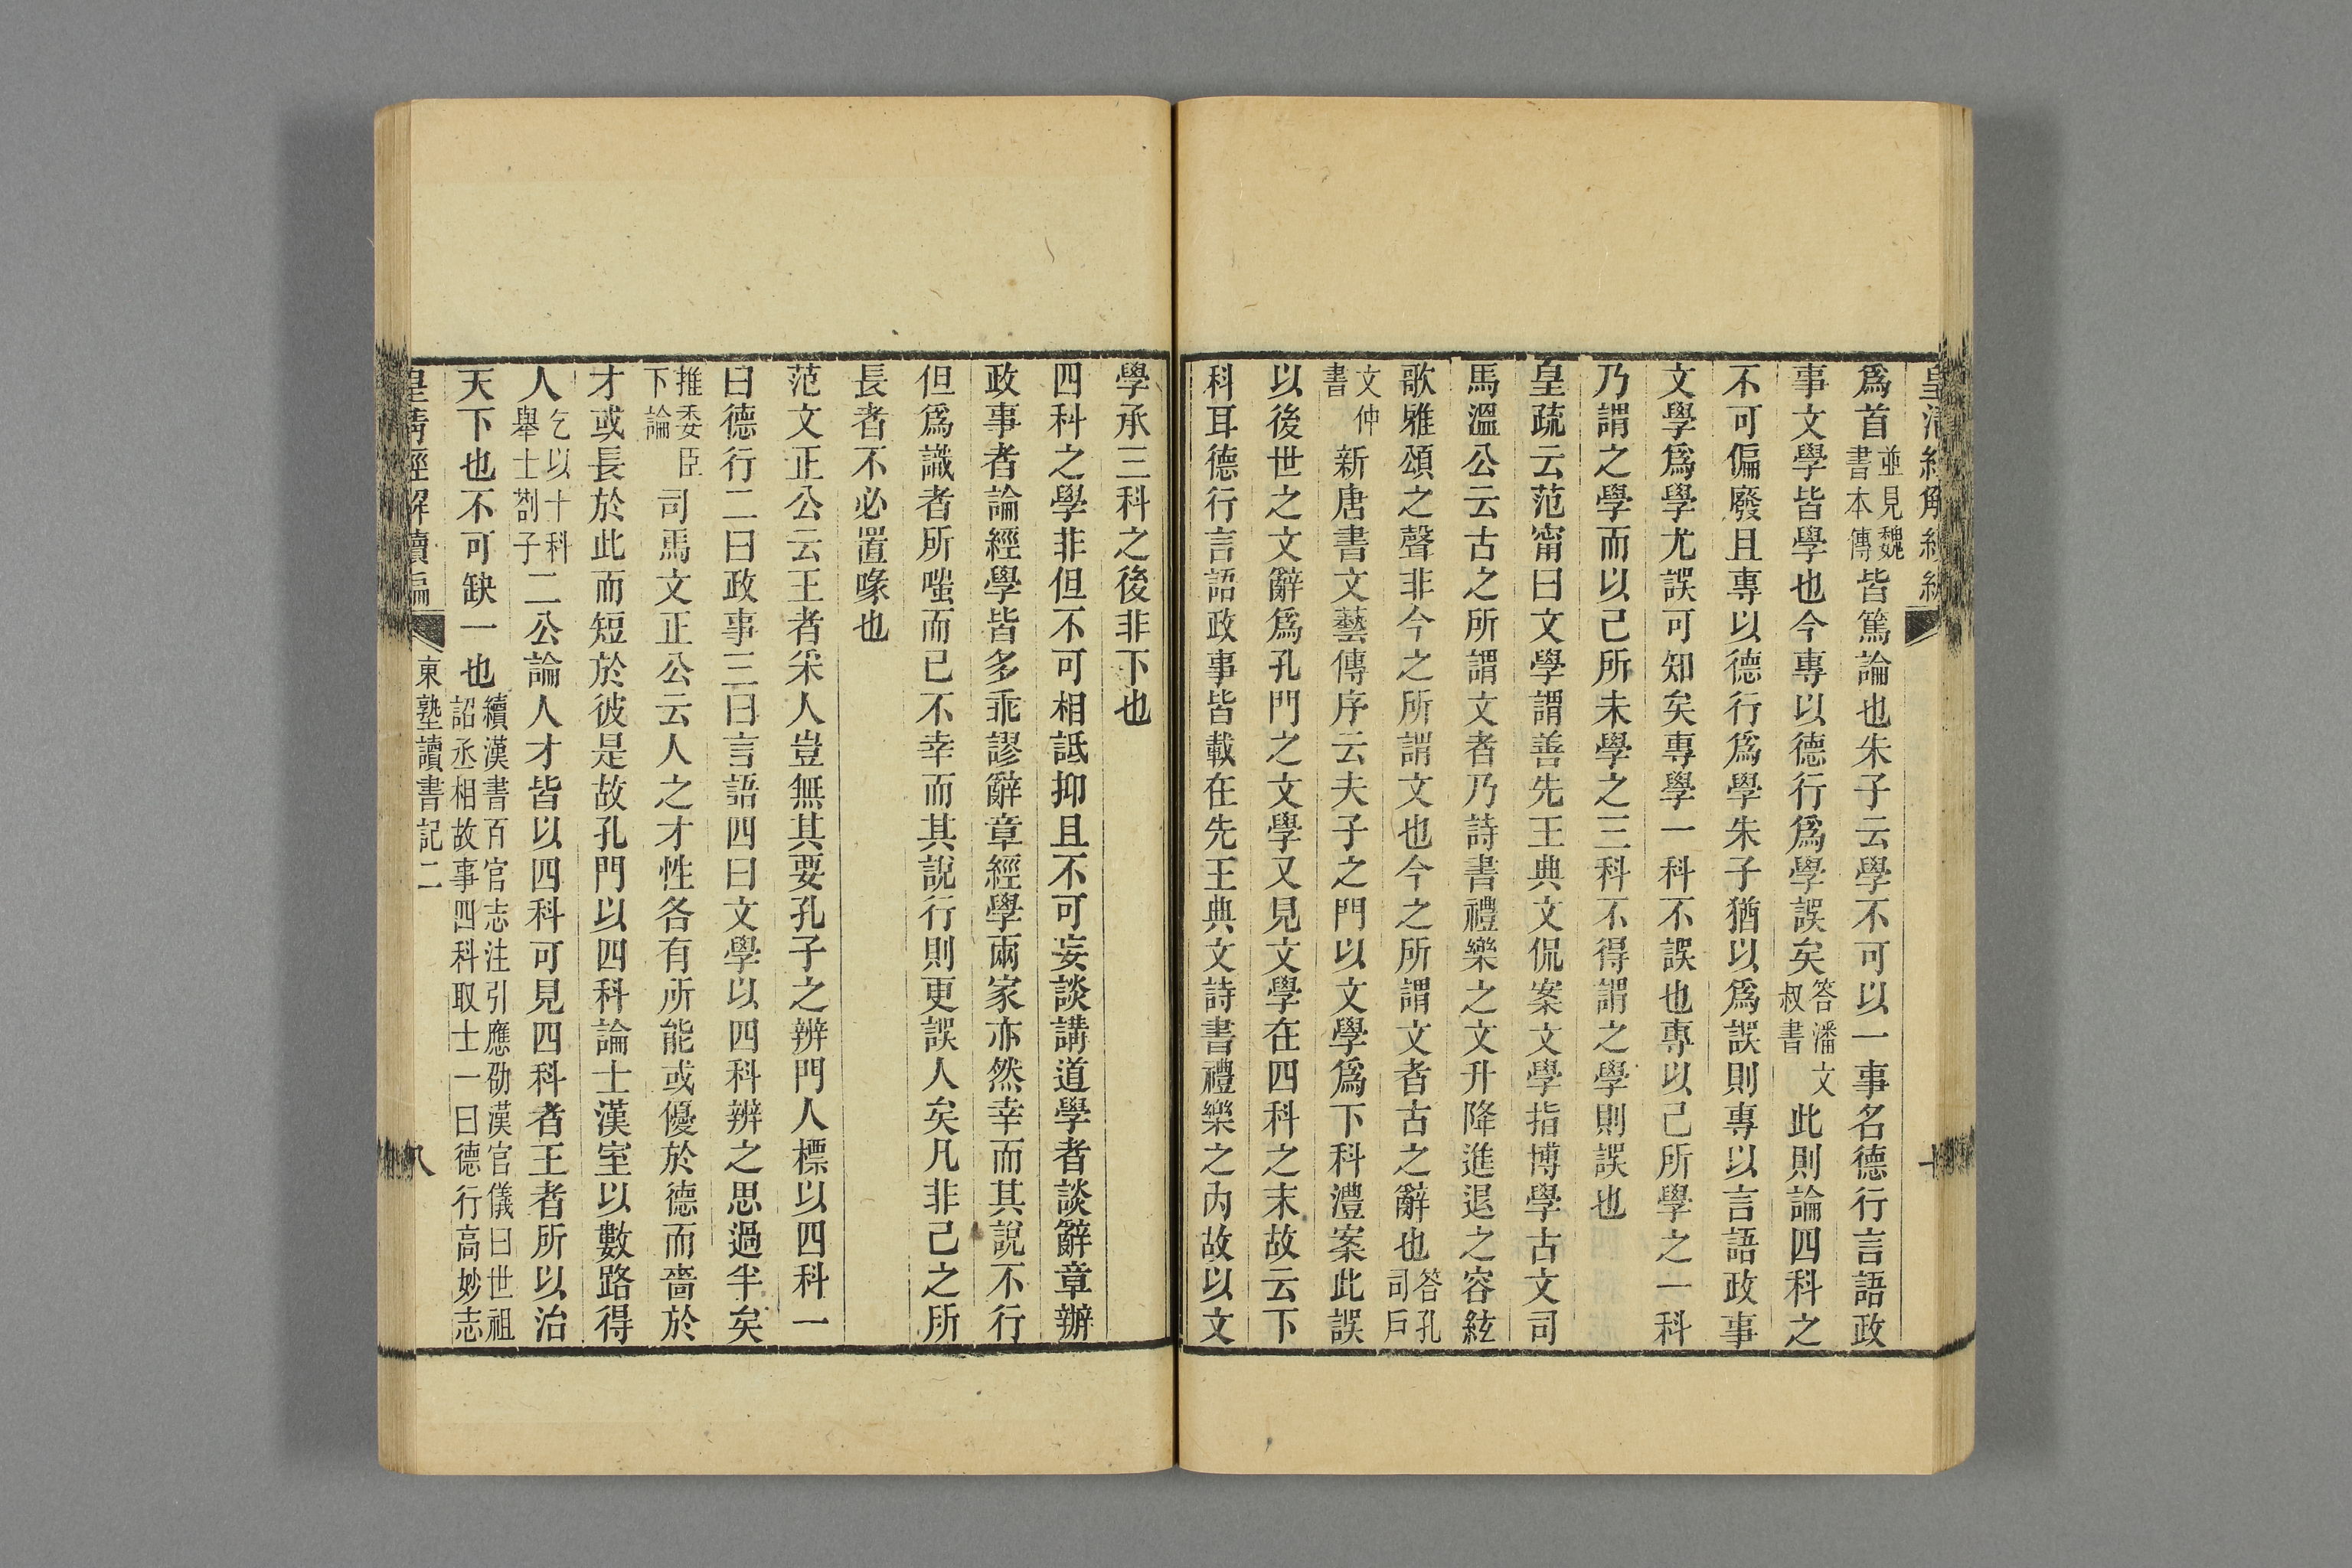 爲首並見魏書本傳皆篤論也朱子云學不可以一事名德行言語政
事文學皆學也今專以德行爲學誤矣答潘文叔書此則論四科之
不可偏廢且專以德行爲學朱子猶以爲誤則專以言語政事
文學爲學尤誤可知矣專學一科不誤也專以己所學之一科
乃謂之學而以己所未學之三科不得謂之學則誤也
皇疏云范甯曰文學謂善先王典文侃案文學指博學古文司
馬溫公云古之所謂文者乃詩書禮樂之文升降進退之容絃
歌雅頌之聲非今之所謂文也今之所謂文者古之辭也答孔司戶
文仲書新唐書文藝傳序云夫子之門以文學爲下科澧案此誤
以後世之文辭爲孔門之文學又見文學在四科之末故云下
科耳德行言語政事皆載在先王典文詩書禮樂之內故以文
學承三科之後非下也
四科之學非但不可相詆抑且不可妄談講道學者談辭章辦
政事者論經學皆多乖謬辭章經學兩家亦然幸而其說不行
但爲識者所嗤而已不幸而其說行則更誤人矣凡非己之所
長者不必置喙也
范文正公云王者采人豈無其要孔子之辨門人標以四科一
曰德行二曰政事三曰言語四曰文學以四科辨之思過半矣
推委臣下論司馬文正公云人之才性各有所能或優於德而嗇於
才或長於此而短於彼是故孔門以四科論士漢室以數路得
人乞以十科舉士劄子二公論人才皆以四科可見四科者王者所以治
天下也不可缺一也續漢書百官志注引應劭漢官儀曰世祖詔丞相故事四科取士一曰德行高妙志
皇清經解續編
東塾讀書記二
八